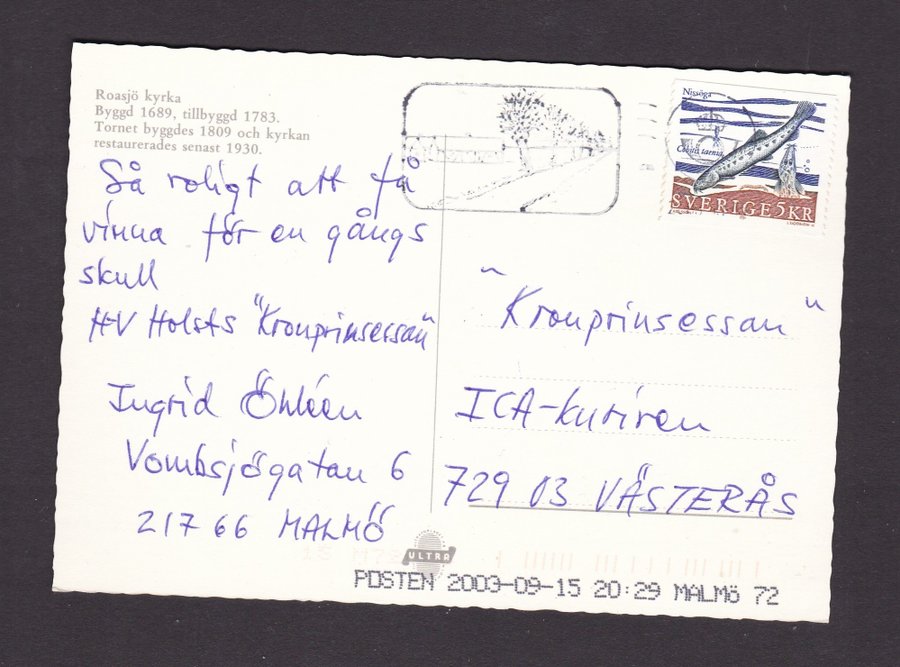 Roasjö kyrka
Byggd 1689, tillbyggd 1783.
Tornet byggdes 1809 och kyrkan
restaurerades senast 1930.
Så roligt att få
vinna för en gångs
skull
H-V Holsts "Kronprinsessan"
Ingrid Öhléen
Vombsjögatan 6
217 66 MALMÖ
Nissöga
Cobitis taenia
SVERIGE 5KR
" Kronprinsessan "
ICA-kuriren
729 03 VÄSTERÅS
ULTRA
POSTEN 2003-09-15 20:29 MALMÖ 72